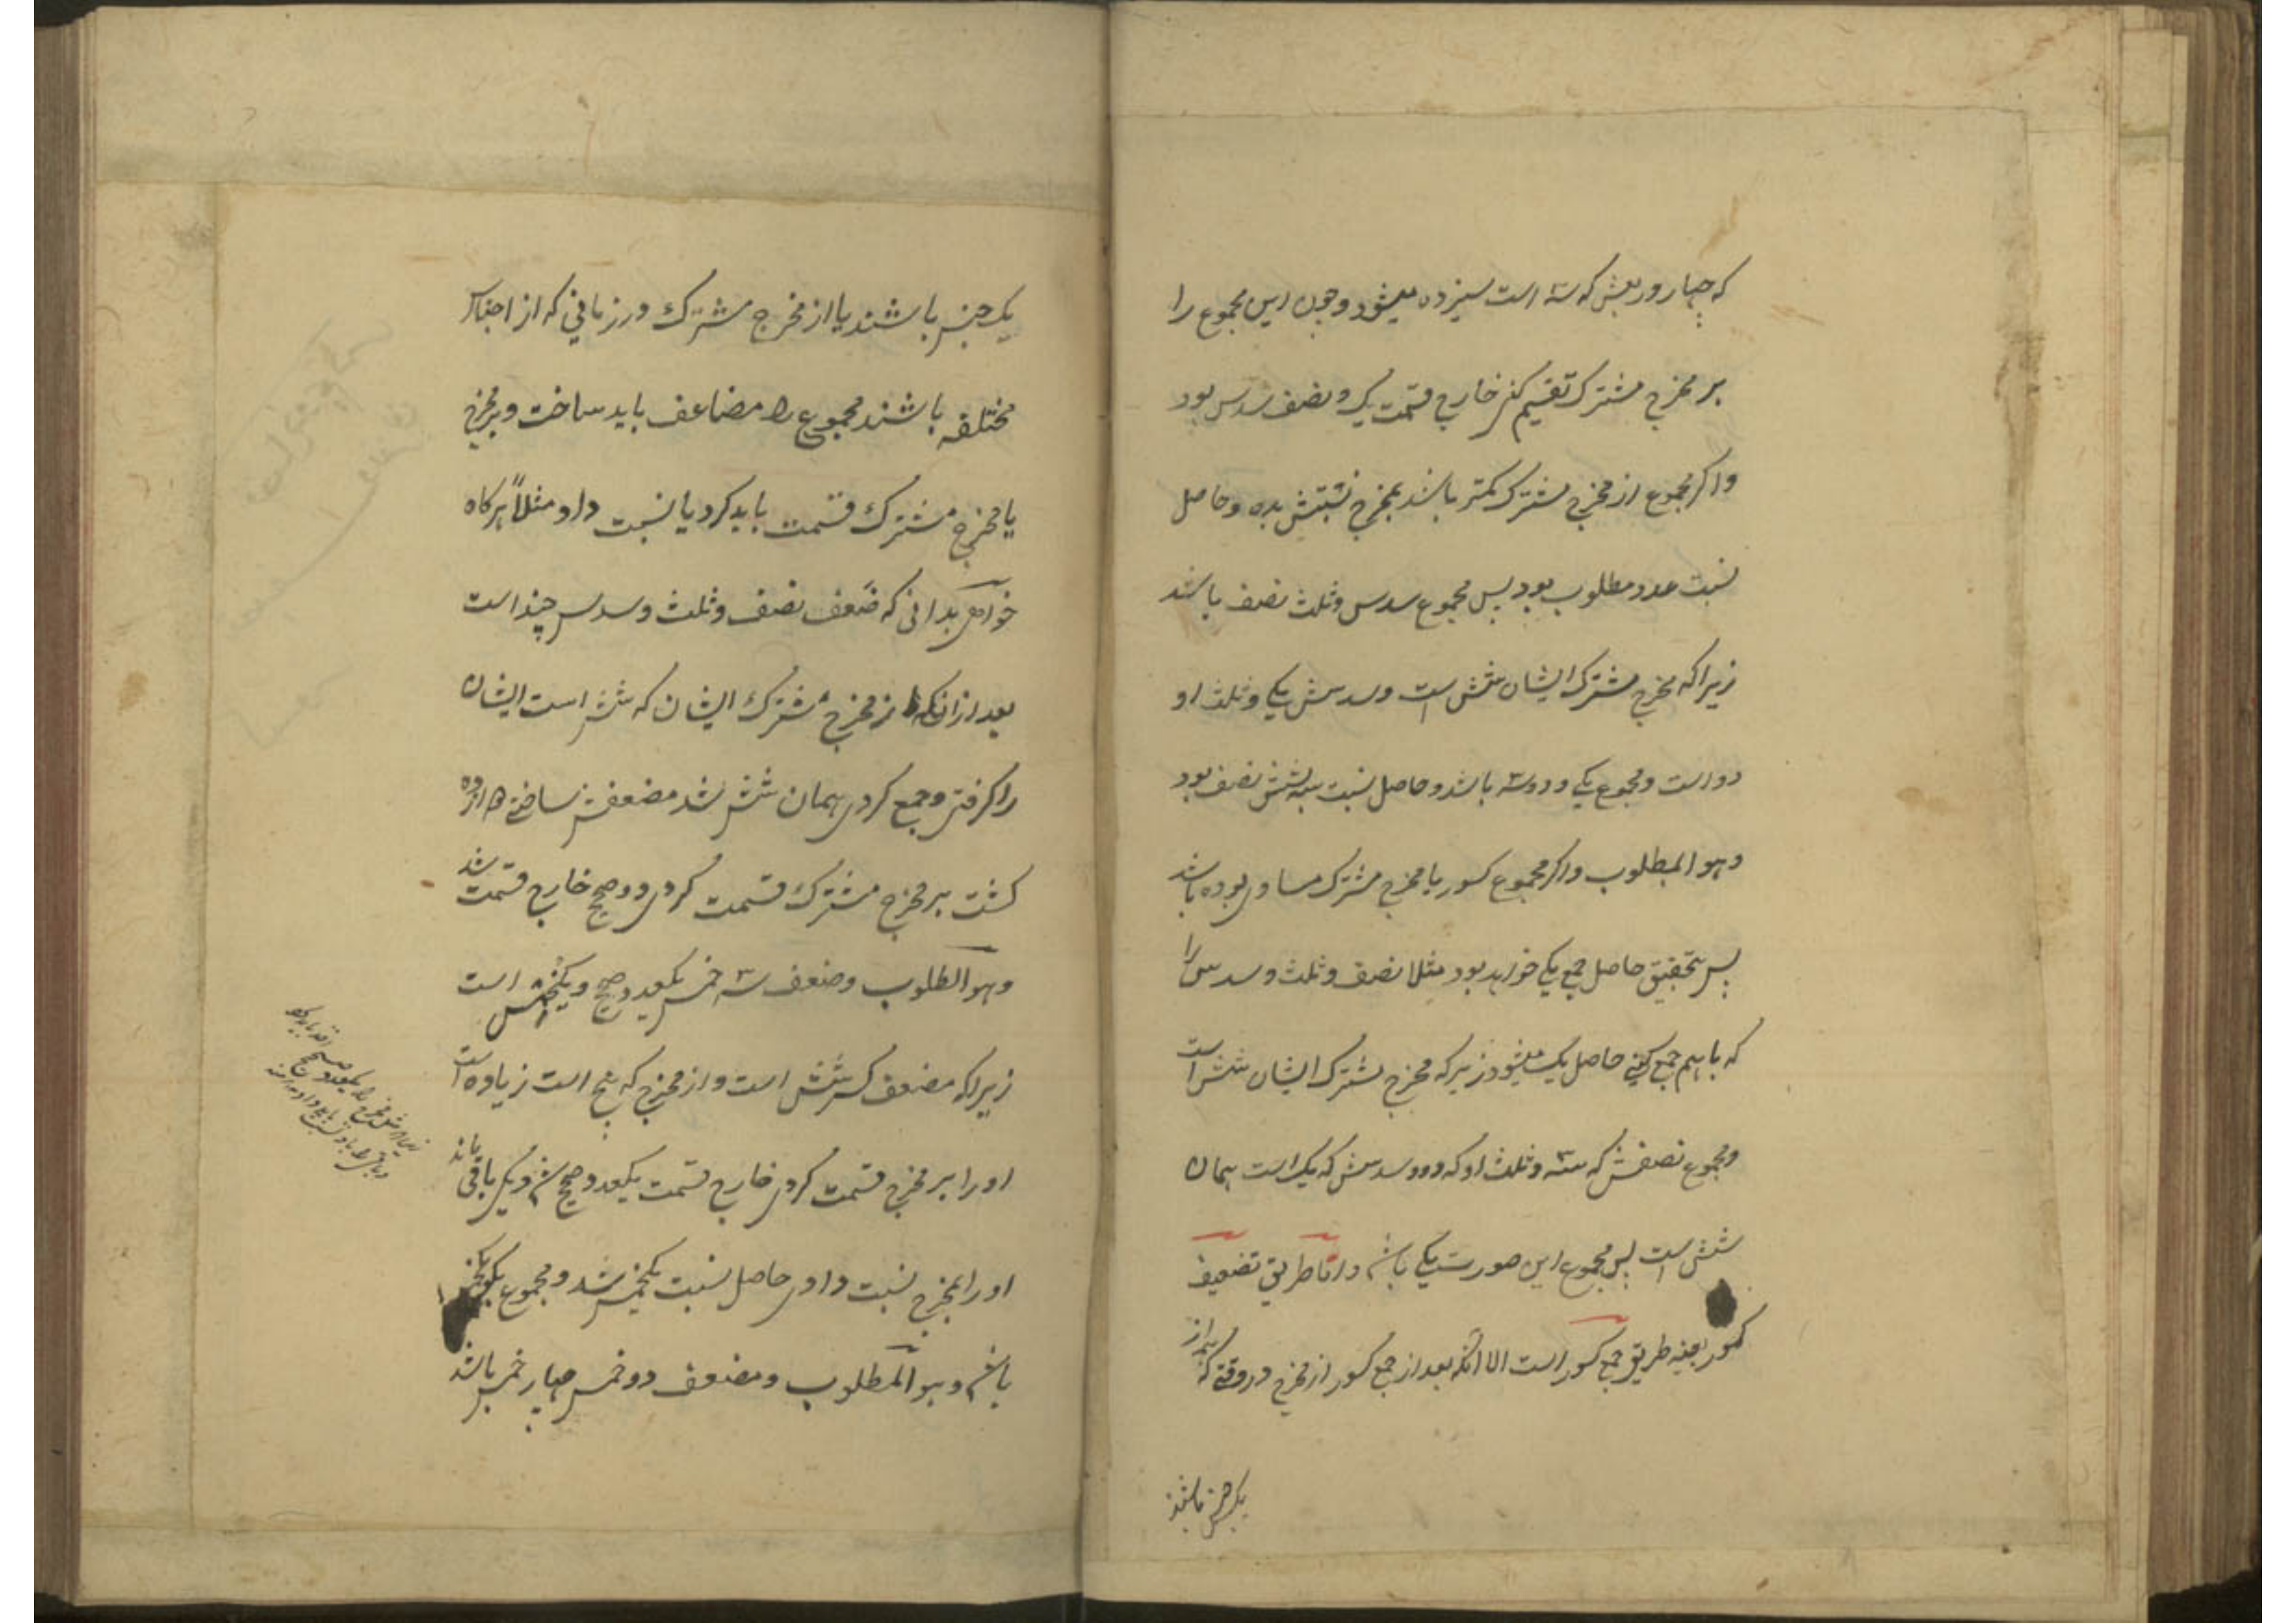 که چهار و ربعش که سه است سیزده میشود و چون این مجموع را
بر مخرج مشترک تقسیم کنی خارج قسمت یک و نصف سدس بود
واکر مجموع از مخرج مشترک کمتر باشد بمخرج نسبتش بده و حاصل
نسبت عدد مطلوب بود پس مجموع سدس و ثلث نصف باشد
زیرا که مخرج مشترک ایشان شش است و سدسش یکی و ثلث او
دو است و مجموع یکی و دو سه باشد و حاصل نسبت سه بشش نصف بود
و هو المطلوب واکر مجموع کسور با مخرج مشترک مساوی بوده باشد
پس بتحقیق حاصل جمع یکی خواهد بود مثلا نصف و ثلث و سدس را
که با هم جمع کنی حاصل یک میشود زیرکه مخرج مشترک ایشان شش است
و مجموع نصفش که سه و ثلث او که دو و سدسش که یک است همان
شش است پس مجموع این صورت یکی باشد و اما طریق تضعیف
کسور بعینه طریق جمع کسور است الا انکه بعد از جمع کسور از مخرج در وقتی که همه از
یک جنس باشند
یک جنس باشند یا از مخرج مشترک در زمانی که از اجناس
مختلفه باشند مجموع را مضاعف باید ساخت و بر مخرج
یا مخرج مشترک قسمت باید کرد یا نسبت داد مثلاً هرکاه
خواهی بدانی که ضعف نصف و ثلث و سدس چند است
بعد از انکه از مخرج مشترک ایشان که شش است ایشان
را کرفتی و جمع کردی همان شش شد مضعفش ساختی دوازده
کشت بر مخرج مشترک قسمت کردی دو صحیح خارج قسمت شد
و هو المطلوب و ضعف سه خمس یکعدد صحیح و یکخمس است
زیرا که مضعف کسر شش است و از مخرج که پنج است زیاده است
او را بر مخرج قسمت کردی خارج قسمت یکعدد صحیح شد و یکی باقی ماند
او را بمخرج نسبت دادی حاصل نسبت یکخمس شد و مجموع یک و یکخمس
باشد و هو المطلوب و مضعف دو خمس چهار خمس باشد